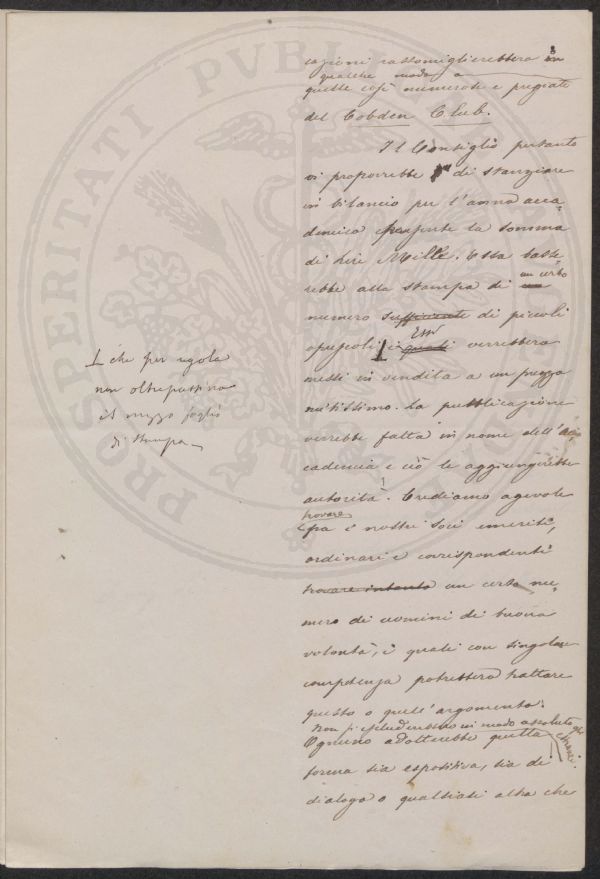 cazioni rassomiglierebbero in
qualche modo a
quelle così numerose e pregiate
del Cobden Club.
Il Consiglio pertanto
vi proporrebbe di stanziare
in bilancio per l'anno acca-
demico presente la somma
di Lire Mille. Essa baste-
rebbe alla stampa di un certo
numero sufficiente di piccoli
opuscoli i quali Essi verrebbero
messi in vendita a un prezzo
mitissimo. La pubblicazione
verrebbe fatta in nome dell'Ac-
cademia e ciò le aggiungerebbe
autorità. Crediamo agevole
trovare
fra i nostri soci emeriti,
ordinari e corrispondenti
trovare intanto un certo nu-
mero di uomini di buona
volontà, i quali con singolare
competenza potrebbero trattare
questo o quell'argomento.
Non si escluderebbero in modo assoluto gli
estranei.
Ognuno adotterebbe quella
forma sia espositiva, sia di
dialogo o qualsiasi altra che
che per regola
non oltrepassino
il mezzo foglio
di stampa
PROSPERITATI PVBLICAE